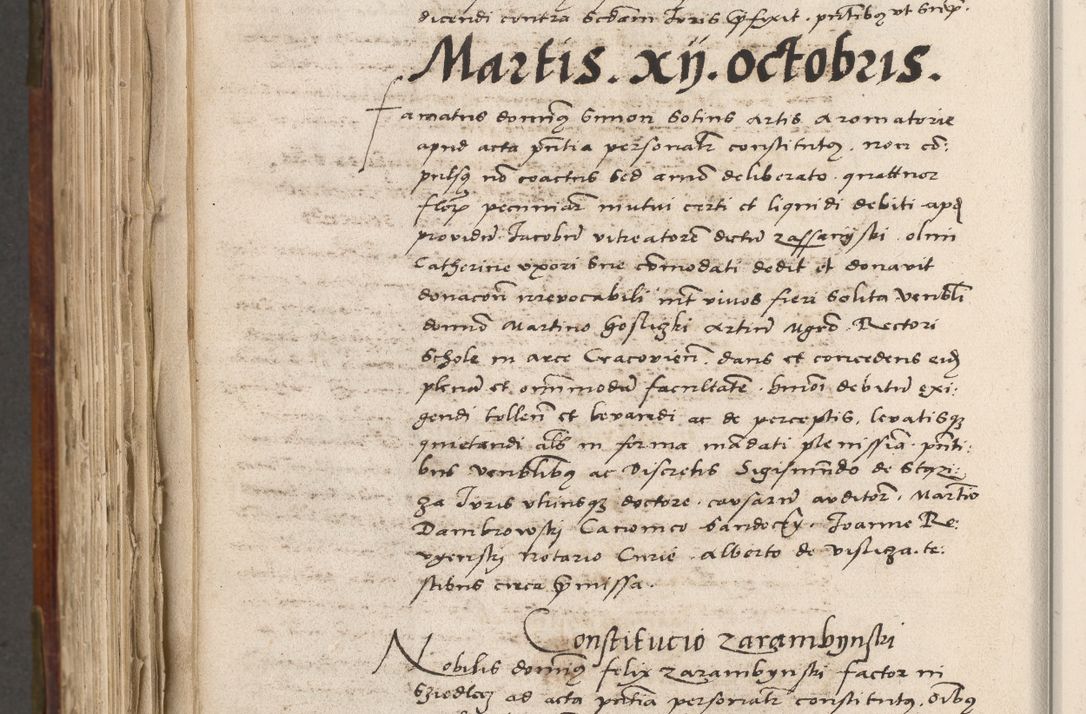 dicendi contra scdam Juris pfixit . pntibq ut supr.
Martis . xij . octobris .
Famatus dominq Simon Sotius artis aromatorie
apud acta pntia personalr constitutq . non co:
pulsq no coactus sed aimo deliberato . quattuor
flor pecuniar mutui certi et liquidi debiti apd
providu Jacobu vitreatore dictu zassanijski . olim
Catherine uxori sue comodati dedit et donavit
donacon irrevocabili int vivos fieri solita Venbli
domio Martino Goslizki artiu Mgro . Rectori
Schole in arce Cracovien . dans et concedens eid
plena et omimoda facultate . hmoi debitu exi:
gendi tollen et levandi ac de perceptis . levatisq
quietandi als in forma madati plenissia . pnti:
bus Venblibq ac Discretis Sigismudo de Styzi:
za Juris utriusq doctore . causaru auditor . Martio
Dambrowski Canonico Sandocz . Joanne Re:
vgenski notario Curie . Alberto de Visliza . te:
stibus circa pmissa .
Constitucio zarambynski
Nobilis dominq Felix zarambynski factor in
Sziedlcz ad acta pntia personalr constitutq . oibq